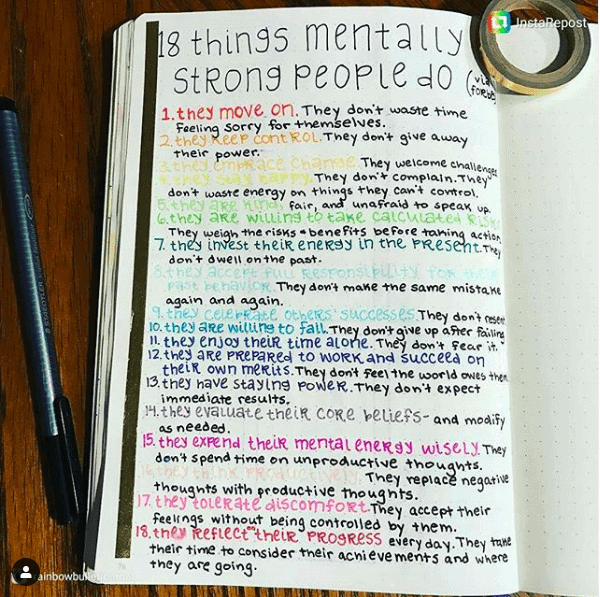 InstaRepost
18 things mentally
STRONG PEOPLE dO (via
forbes)
1. they move on. They don't waste time
feeling sorry for themselves.
2. they keep contROL. They don't give away
their power.
3. they embrace change. They welcome challenges
4. they stay happy. They don't complain. They
don't waste energy on things they can't control.
5. they are kind, fair, and unafraid to speak up.
6. they are willing to take calculated risks
They weigh the risks + benefits before taking action
7. they invest their energy in the present. They
don't dwell on the past.
8. they accept full responsibility for their
past behavior. They don't make the same mistake
again and again.
9. they celebrate others' successes. They don't resent
10. they are willing to fail. They don't give up after failing
11. they enjoy their time alone. They don't fear it.
12. they are prepared to work and succeed on
their own merits. They don't feel the world owes them
13. they have staying power. They don't expect
immediate results.
14. they evaluate their core beliefs - and modify
as needed.
15. they expend their mental energy wisely. They
don't spend time on unproductive thoughts.
16. they think productively. They replace negative
thoughts with productive thoughts.
17. they tolerate discomfort. They accept their
feelings without being controlled by them.
18. they reflect their progress every day. They take
their time to consider their achievements and where
they are going.
STAEDTLER